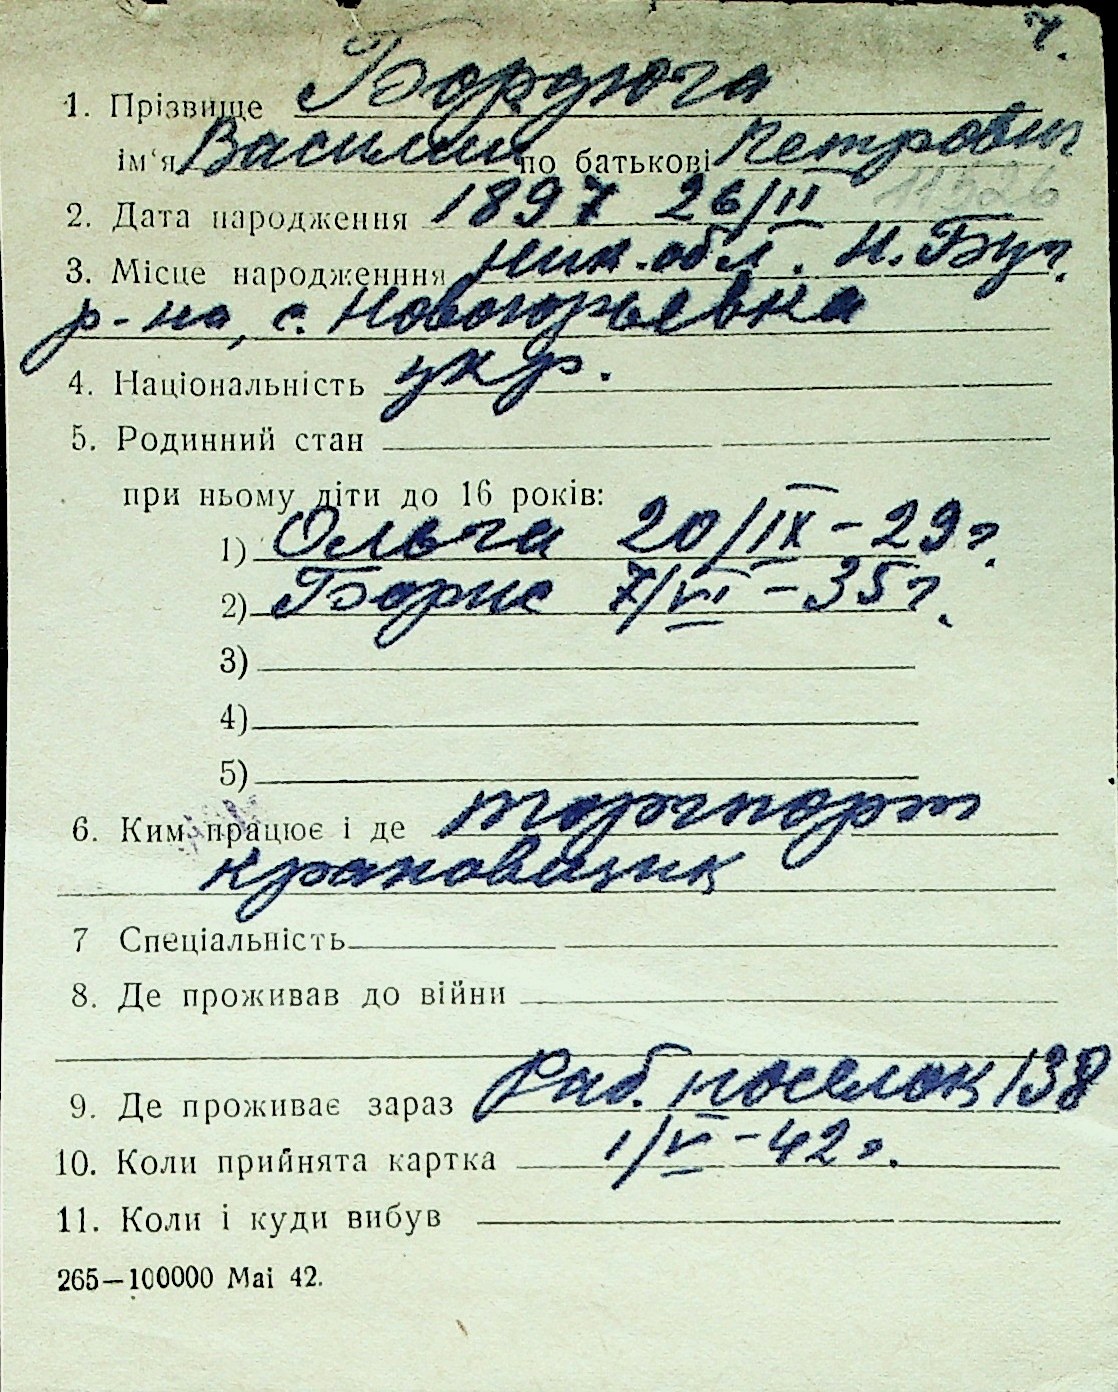 ч.
1. Прізвище Бордюга
ім‘я Василий по батькові Петрович
11526
2. Дата народження 1897 26/II
3. Місце народженння Ник. обл. Н. Буг.
р-на, с. Новоюрьевка
4. Національність укр.
5. Родинний стан
при ньому діти до 16 років:
1) Ольга 20/IX – 29 г.
2) Борис 7/VI – 35 г.
3)
4)
5)
6. Ким працює і де торгпорт
крановщик
7 Спеціальність
8. Де проживав до війни
9. Де проживає зараз Раб. поселок 138
10. Коли прийнята картка 1/VI – 42 г.
11. Коли і куди вибув
265—100000 Mai 42.